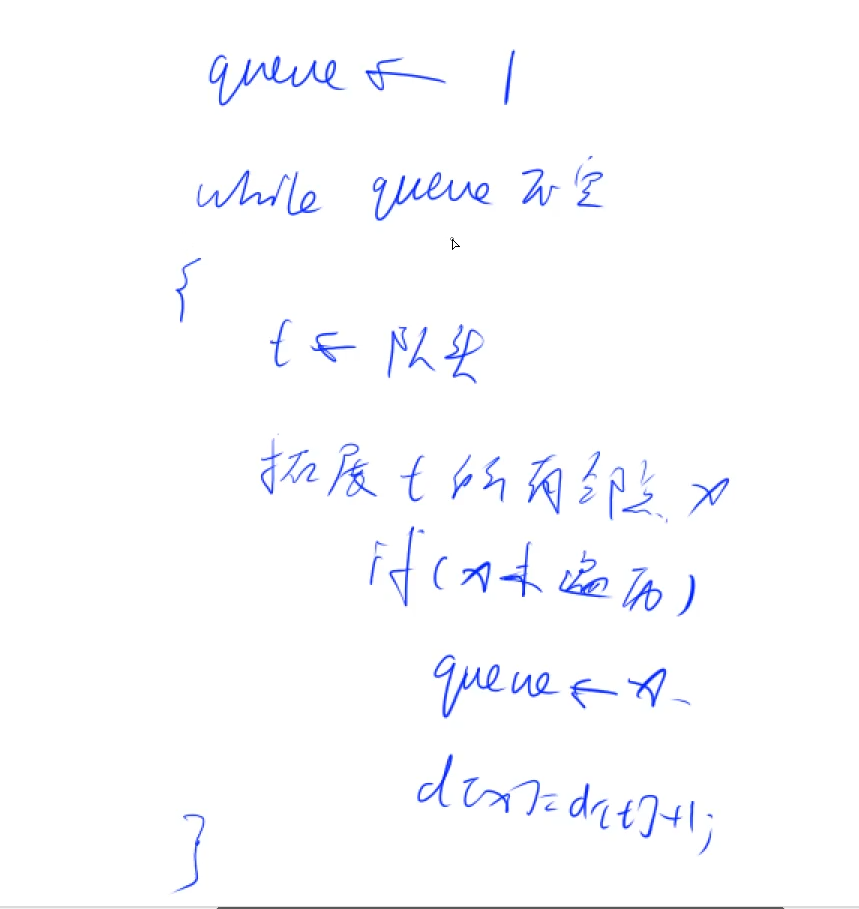 queue ← 1
while queue 不空
{
t ← 队头
拓展 t 的所有邻点 x
if (x未遍历)
queue ← x
d[x]=d[t]+1;
}